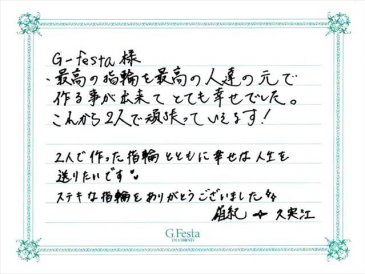 G-festa 様
、最高の指輪を最高の人達の元で
作る事が出来てとても幸せでした。
これから2人で頑張っていきます!
2人で作った指輪とともに幸せな人生を
送りたいです
ステキな指輪をありがとうございました
久実江
G.Festa